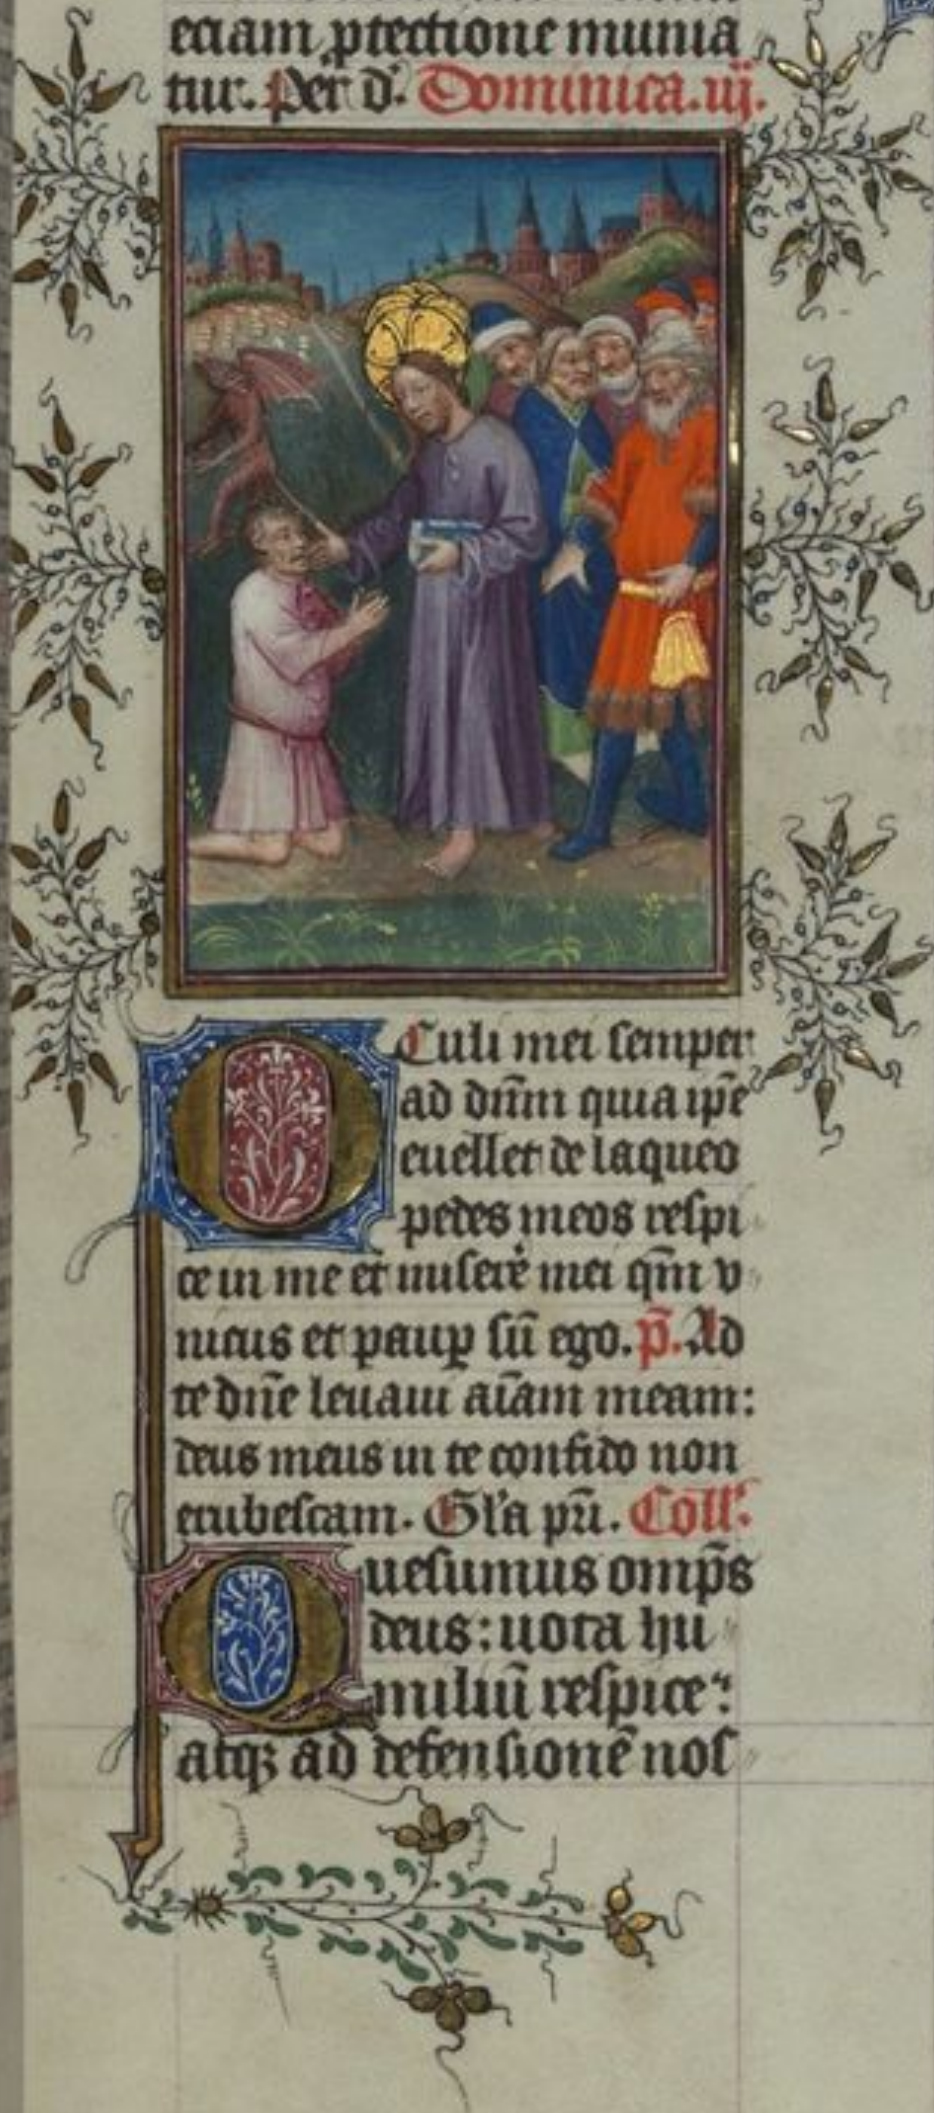 eciam ꝓtectione munia
tur. Per d. Dominica .iij.
OCuli mei semper
ad dn̄m quia ip̄e
euellet de laqueo
pedes meos respi
ce in me et misere mei qm̄ v
nicus et paup̲ sū ego. p̄. Ad
te dn̄e leuaui aīam meam:
deus meus in te confido non
erubescam. Gl'a pr̄i. Coll'.
Quesumus omp̄s
deus: uota hu
miliū respice:
atqꝫ ad defensionē nos